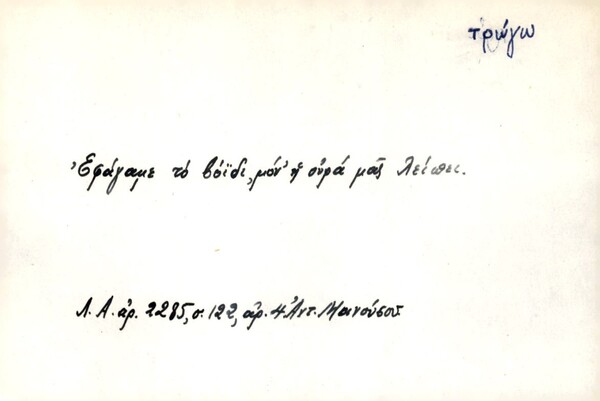 τρώγω
Ἐφάγαμε τὸ βόϊδι, μόν' ἡ οὐρά μᾶς λείπει.
Λ.Α. ἀρ. 2285, σ. 122, ἀρ. 4 Ἀντ. Μανούσου